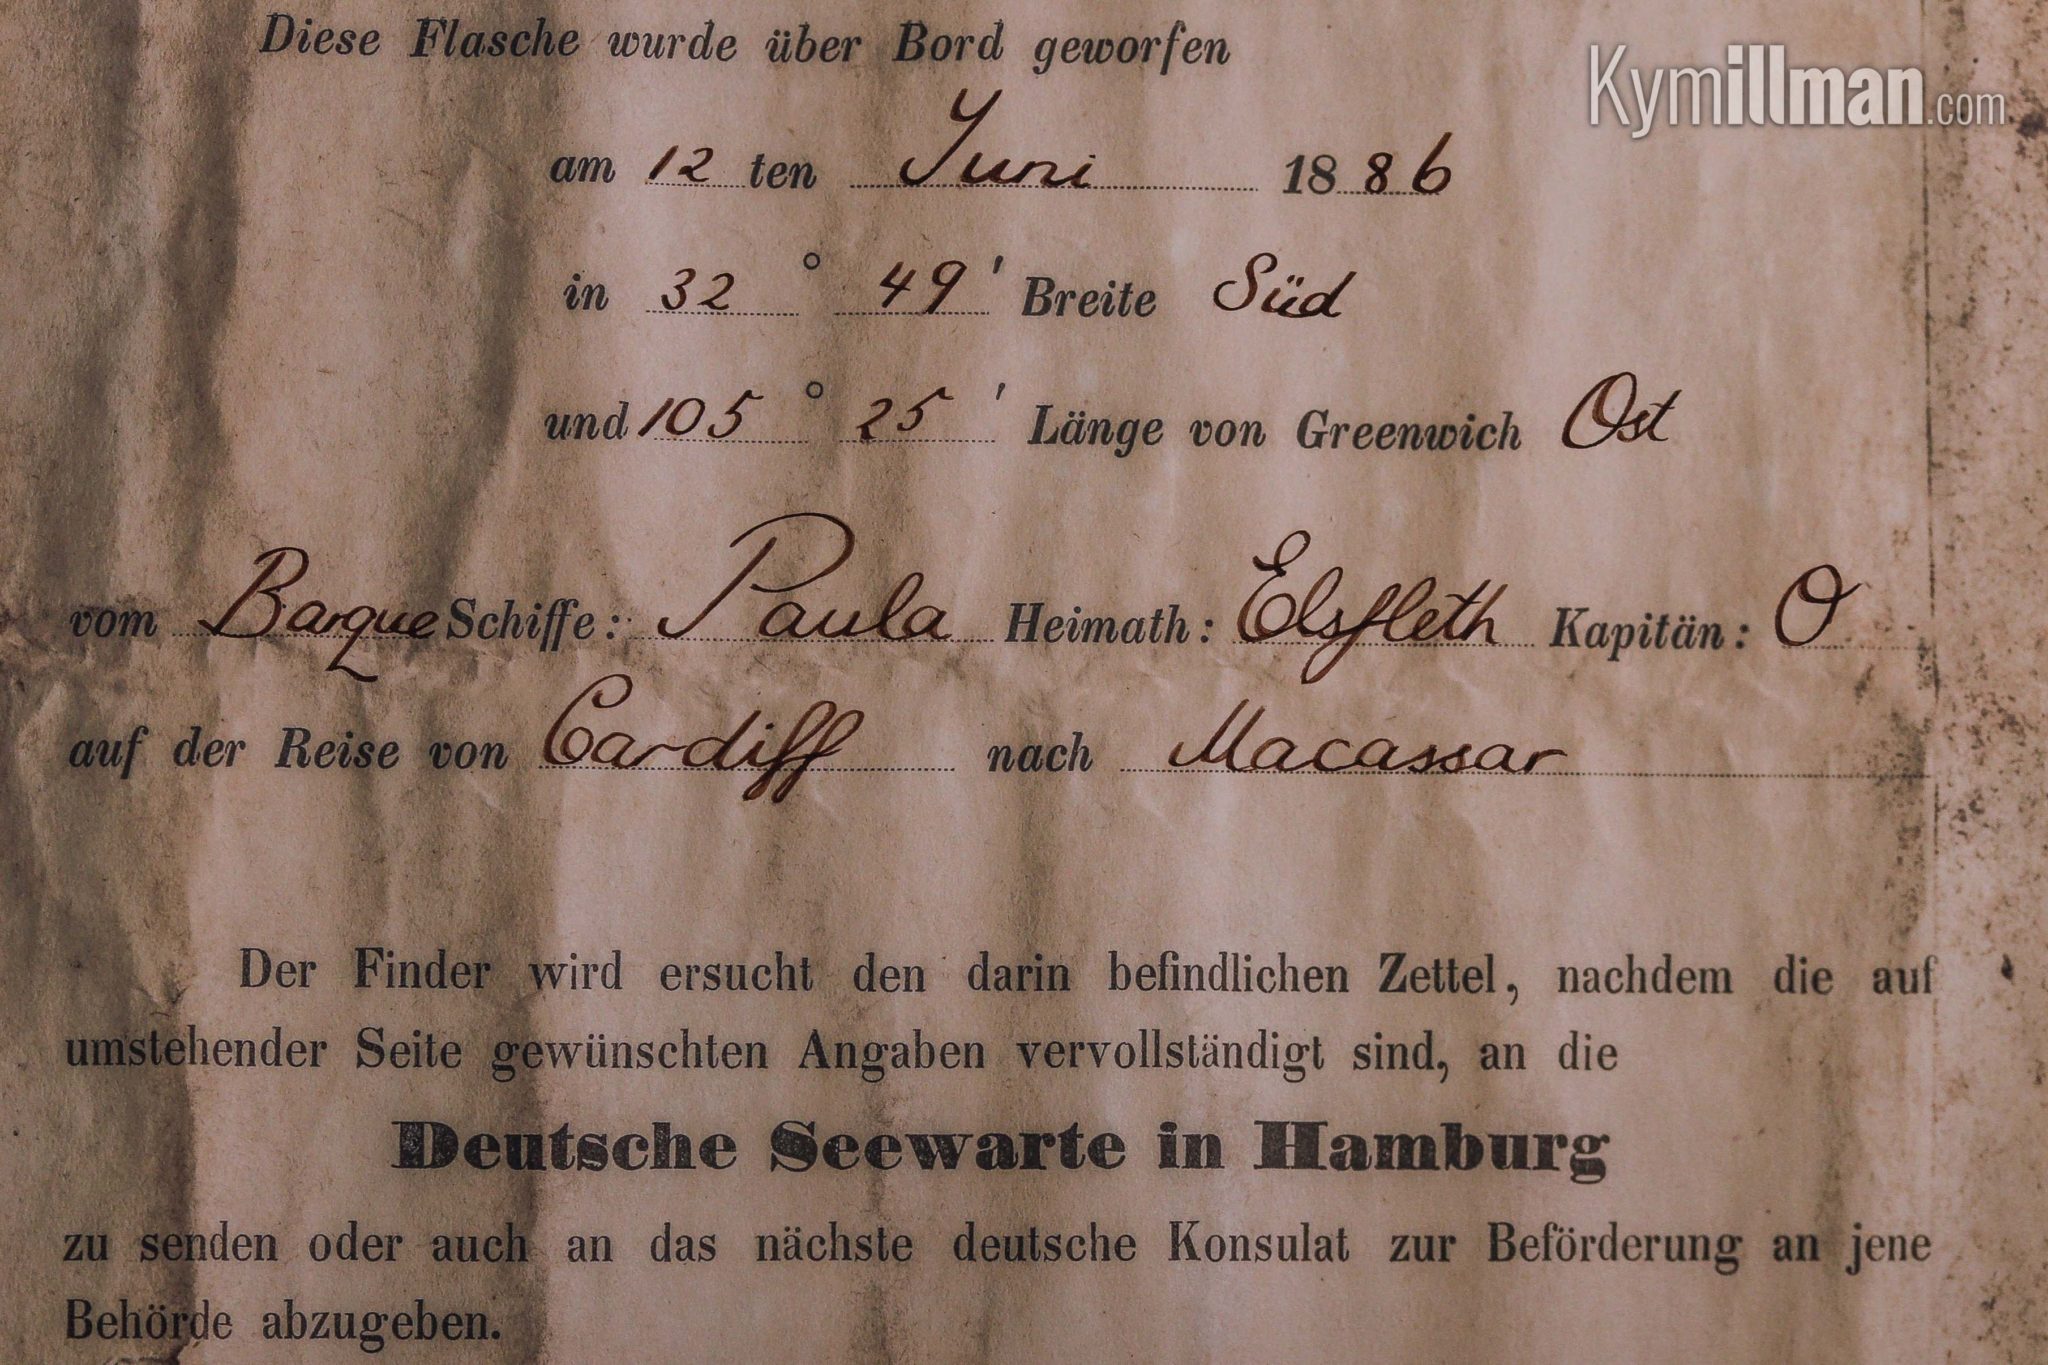 Diese Flasche wurde über Bord geworfen
Kymillman.com
am 12 ten Juni 1886
in 32 ° 49 ' Breite Süd
und 105 ° 25 ' Länge von Greenwich Ost
vom Barque Schiffe: Paula Heimath: Elsfleth Kapitän: O
auf der Reise von Cardiff nach Macassar
Der Finder wird ersucht den darin befindlichen Zettel, nachdem die auf
umstehender Seite gewünschten Angaben vervollständigt sind, an die
Deutsche Seewarte in Hamburg
zu senden oder auch an das nächste deutsche Konsulat zur Beförderung an jene
Behörde abzugeben.